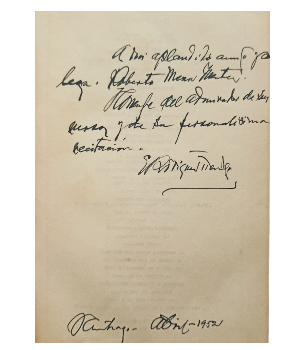 A mi aplaudido amigo y co
lega. Roberto
Homenaje del admirador de sus
versos y de su personalísima
recitación.
Santiago - Abril - 1952